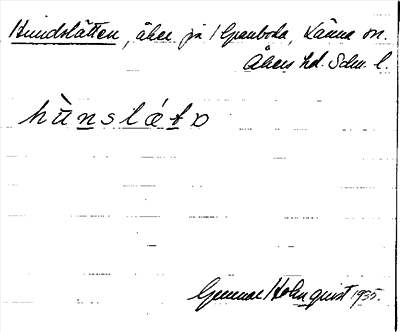 Hundslätten, åker på 1 Granboda, Länna sn.
Åkers hd. Sdm. l.
hùnslǽtɒ
Gunnar Holmquist 1935.